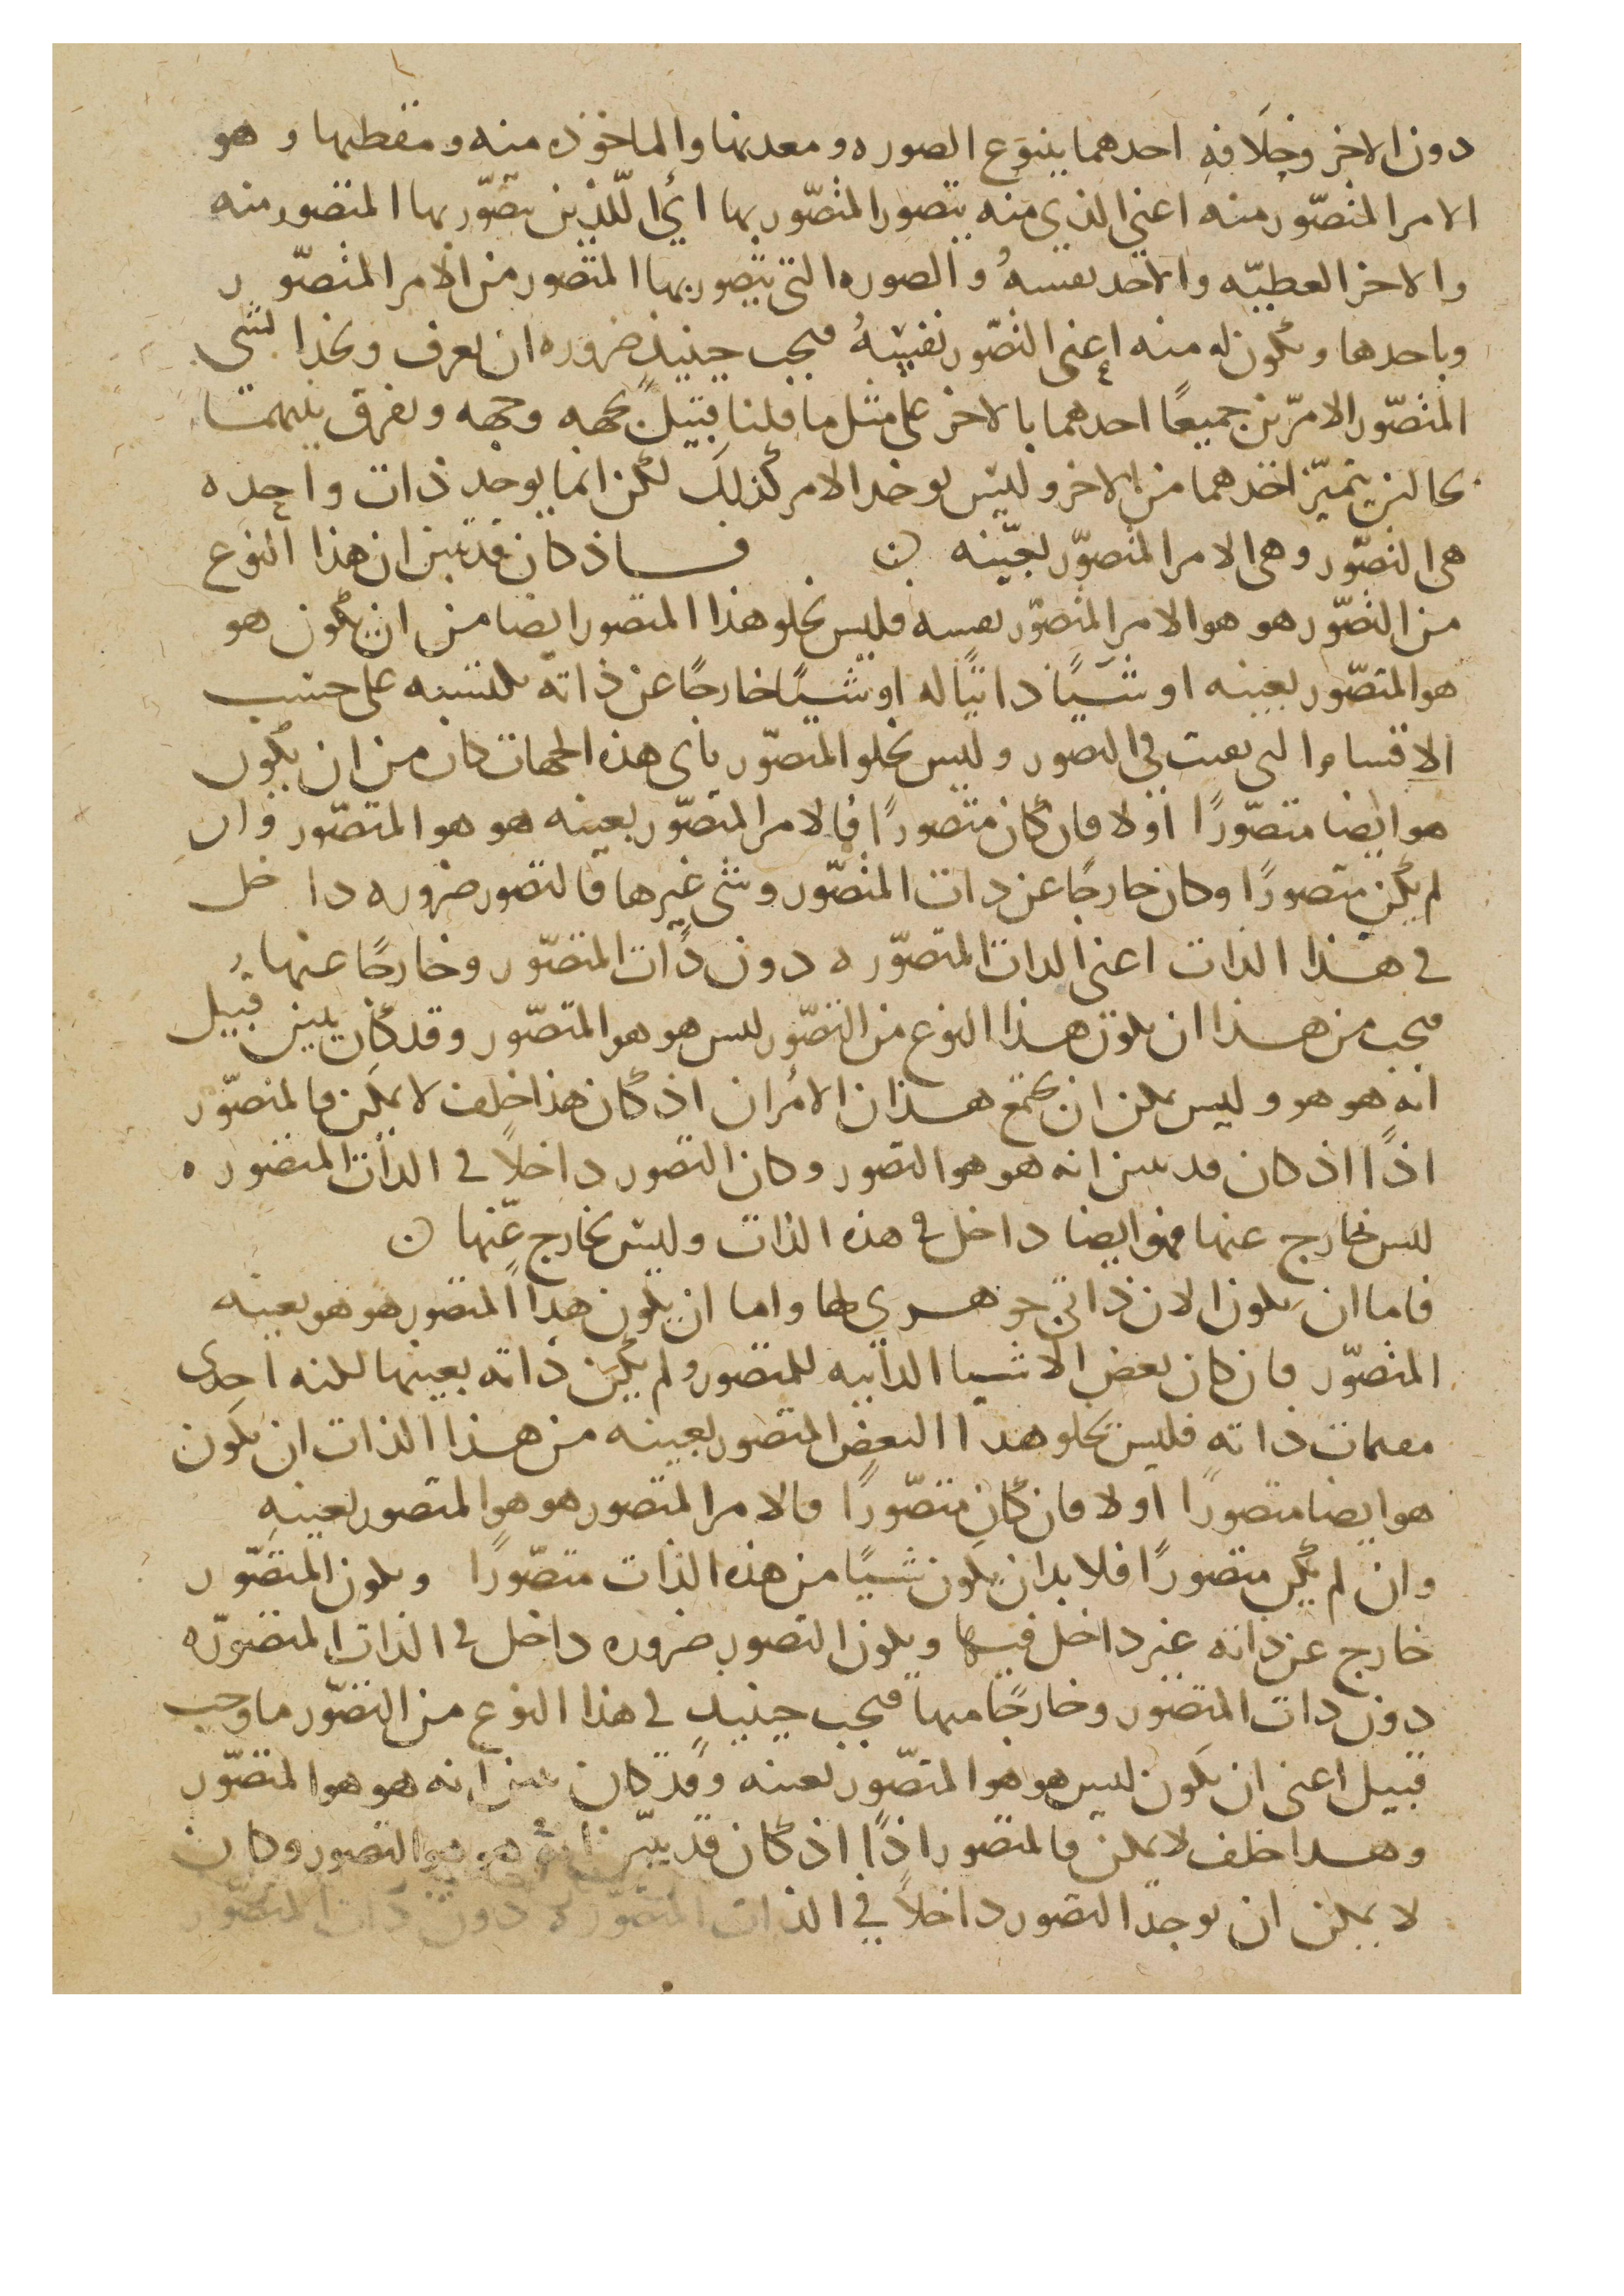 دون الاخر وخلافه احدهما ينبوع الصوره ومعدنها والماخوذه منه ومقطبها وهو
الامر المتصّور منه اعني الذي منه يتصور المتصّور بها اي اللذين يتصّور بها المتصور منه
والاخر العطيّه والاخد نفسهُ والصوره التي يتصور بها المتصور من الامر المتصّور
وباحدها ويكون له منه اعني التصّور نفسهُ فيجب حينيذٍ ضروره ان يعرف ويحدا لشي
المتصّور الامرين جميعًا احدهما بالاخر على مثل ما قلنا قبيلً بجهه وجهه ويفرق بينهما
بحالين يتميّز احدهما من الاخر وليس يوخد الامر كذلك لكن انما يوجد ذات واحده
هي التصّور وهي الامر المتصوّر بعيّنه فاذ كان قد تبين ان هذا النوع
من التصّور هو هو الامر المتصوّر نفسه فليس يخلو هذا المتصور ايضا من ان يكون هو
هو المتصّور بعينه او شيًا داتيًا له او شيًا خارجًا عن ذاته بالنسبه على حسب
الاقسام التي تعت في التصور وليس يخلو المتصّور باى هذه الجهات كان من ان يكون
هو ايضا متصّورًا اولا فان كان متصورًا فالامر المتصّور بعينه هو هو المتصّور وان
لم يكن متصورًا وكان خارجًا عن دات المتصّور وشي غيرها فالتصور ضروره داخل
في هذا الذات اعني الدات المتصّوره دون ذات المتصّور وخارجًا عنها
فيجب من هذا ان يكون هذا النوع من التصّور ليس هو هو المتصّور وقد كان يبين قبيل
انه هو هو وليس يمكن ان يجتمع هذان الامران اذ كان هذا خلف لا يمكن فالمتصوّر
اذًا اذ كان قد تبين انه هو هو التصور وكان التصور داخلاً في الذات المتصوره
ليس بخارج عنها فهو ايضا داخل في هذه الذات وليس بخارج عنّها
فاما ان يكون الان ذاتي جوهري لها واما ان يكون هذا المتصور هو هو بعينه
المتصّور فان كان بعض الاشيا الداتيه للمتصور ولم يكن ذاته بعينها لكنه احدى
مقيمات ذاته فليس يخلو هذا البعض المتصور بعينه من هذا الذات ان يكون
هو ايضا متصورًا اولا فان كان متصّورًا فالامر المتصور هو هو المتصور بعينه
وان لم يكن متصورًا فلا بد ان يكون شيًا من هذه الذات متصّورًا ويكون المتصّور
خارج عن داته غير داخل فيها ويكون التصور ضروره داخل في الذات المتصوّره
دون دات المتصّور وخارجًا منها فيجب حينيدٍ في هذا النوع من التصّور ما وجب
قبيل اعني ان يكون ليس هو هو المتصّور بعينه وقد كان تبين انه هو هو المتصّور
وهدا خلف لا يمكن فالمتصور اذًا اذ كان قد يبيّن انه هو هو التصور وكان
لا يمكن ان يوجد التصور داخلاً في الذات المتصّوره دون ذات المتصّور